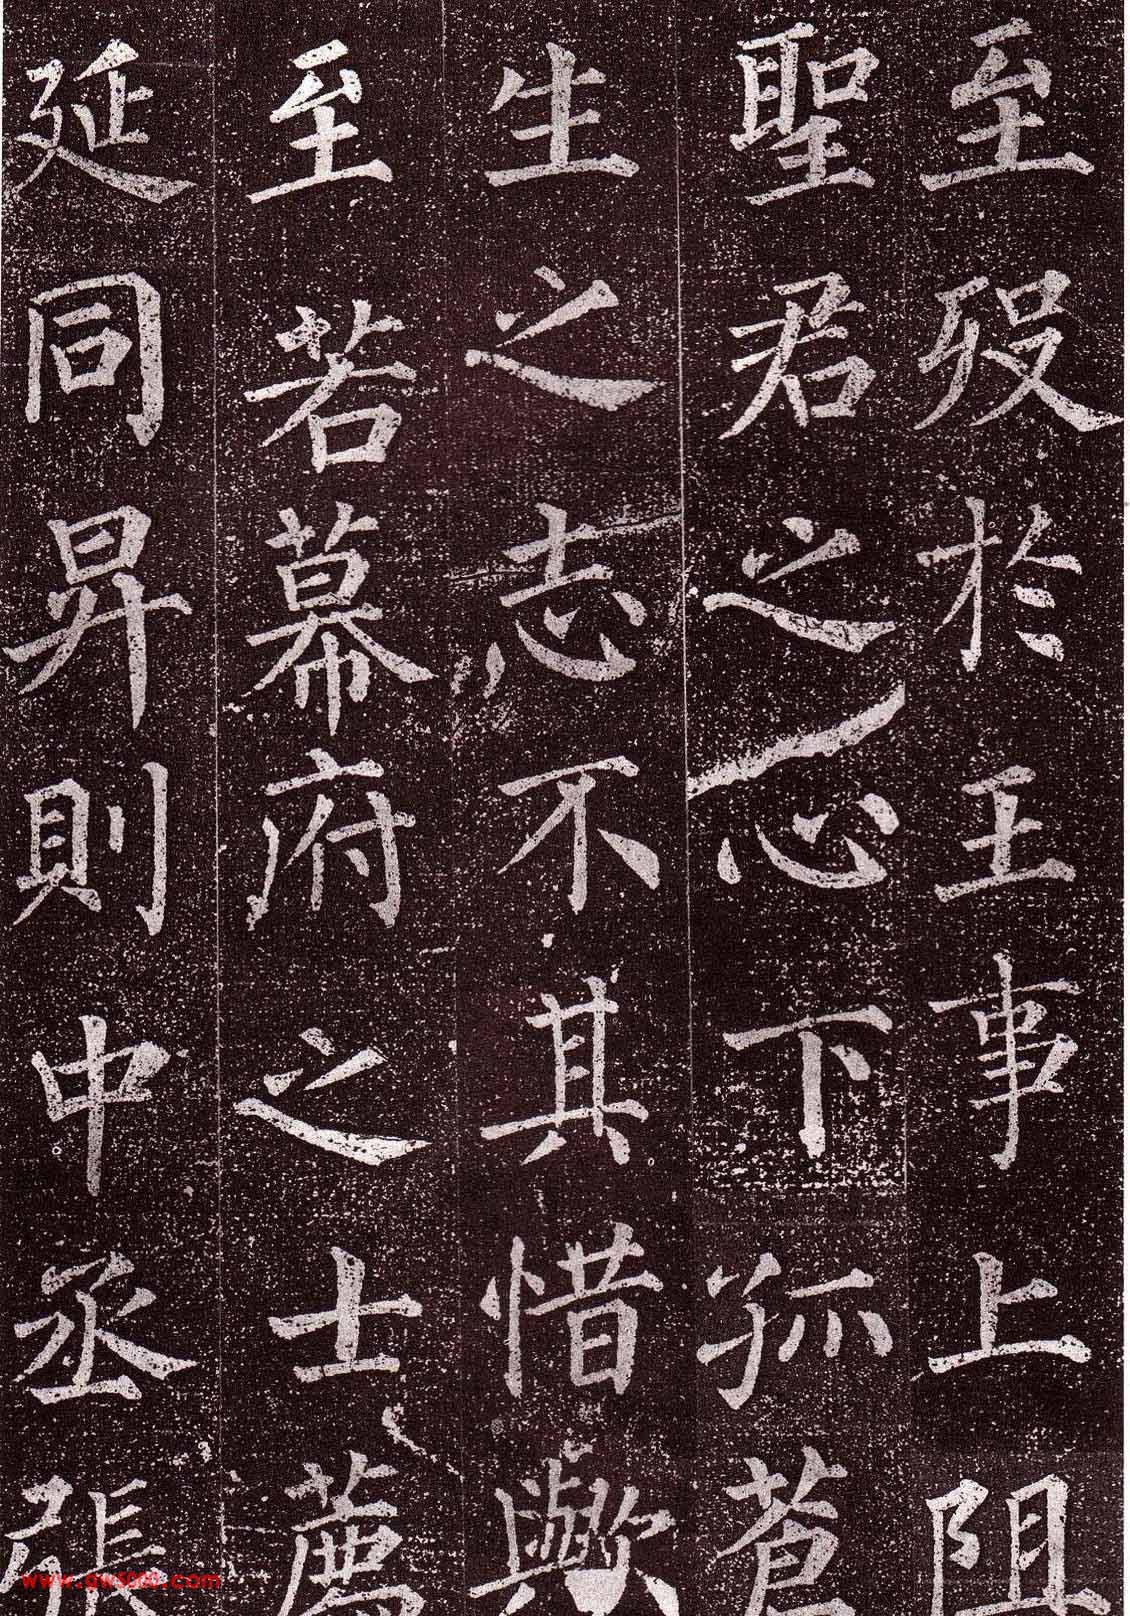 至歿於王事上阻
聖君之心下孤蒼
生之志不其惜歟
至若幕府之士薦
延同昇則中丞張
www.aw5000.com